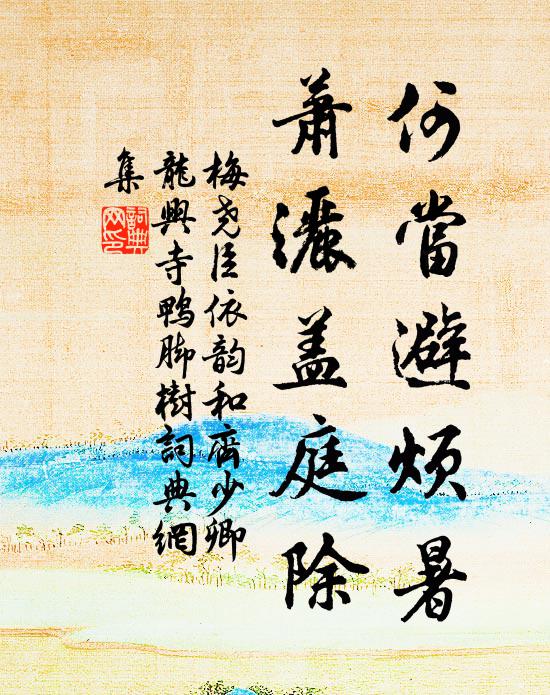 何當避煩暑
蕭灑盖庭除
梅堯臣依韵和齊少卿
龍興寺鴨脚樹詞典網
集
詞典
网印